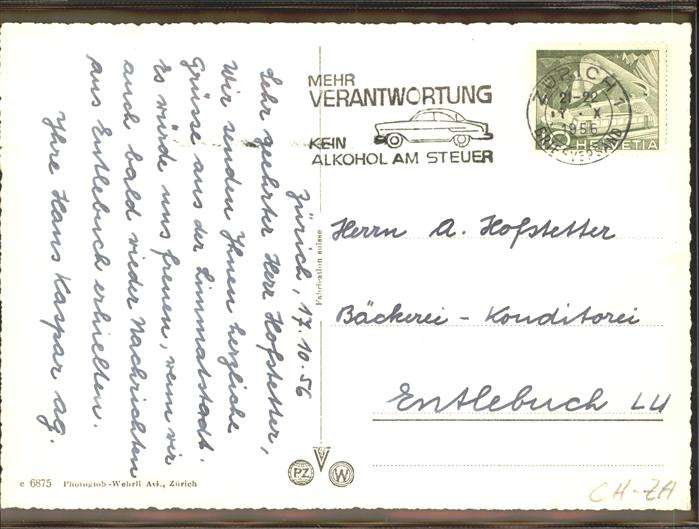 Zürich, 17.10.56
Sehr geehrter Herr Hofstetter,
Wir senden Ihnen herzliche
Grüsse aus der Limmatstadt.
Es würde uns freuen, wenn wir
auch bald wieder Nachrichten
aus Entlebuch erhielten.
Ihre Hans Kaspar ag.
MEHR
VERANTWORTUNG
KEIN
ALKOHOL AM STEUER
ZÜRICH 1
1956
BRIEFVERSAND
HELVETIA
Herrn A. Hofstetter
Bäckerei - Konditorei
Entlebuch LU
Fabrication suisse
PZ
W
c 6875 Photoglob-Wehrli AG., Zürich
CH-ZH